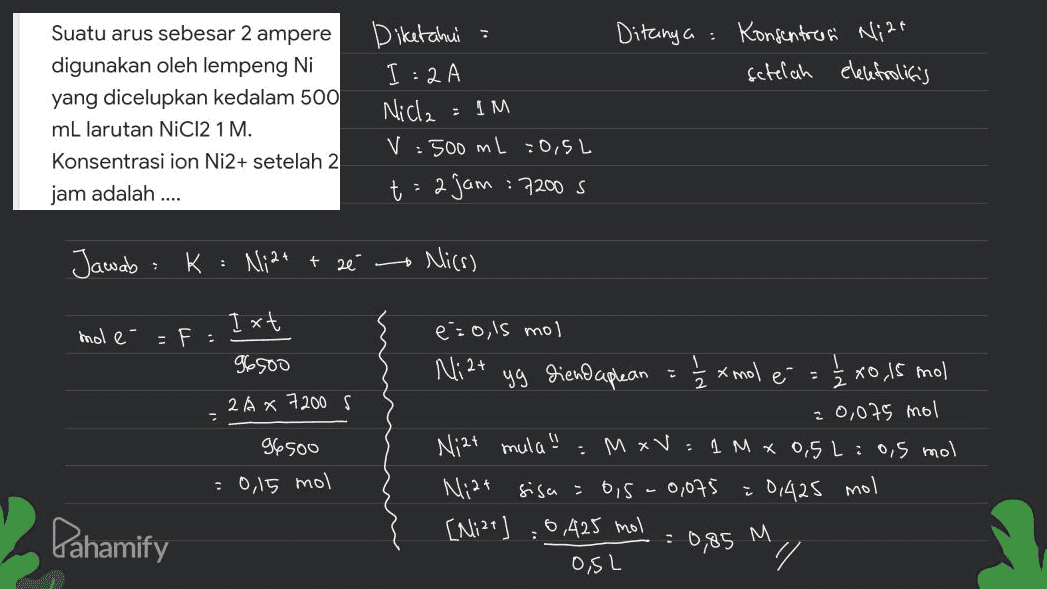 Suatu arus sebesar 2 ampere
digunakan oleh lempeng Ni
yang dicelupkan kedalam 500
mL larutan NiCl2 1 M.
Konsentrasi ion Ni2+ setelah 2
jam adalah ....
Diketahui :
I : 2 A
NiCl₂ = 1 M
V : 500 mL = 0,5 L
t : 2 jam : 7200 s
Ditanya : Konsentrasi Ni²⁺
setelah elektrolisis
Jawab : K : Ni²⁺ + 2e⁻ → Ni(s)
mol e⁻ = F : I x t / 96500
= 2 A x 7200 s / 96500
= 0,15 mol
e⁻ = 0,15 mol
Ni²⁺ yg diendapkan = 1/2 x mol e⁻ = 1/2 x 0,15 mol
= 0,075 mol
Ni²⁺ mula" : M x V = 1 M x 0,5 L = 0,5 mol
Ni²⁺ sisa = 0,5 - 0,075 = 0,425 mol
[Ni²⁺] = 0,425 mol / 0,5 L = 0,85 M //
Pahamify